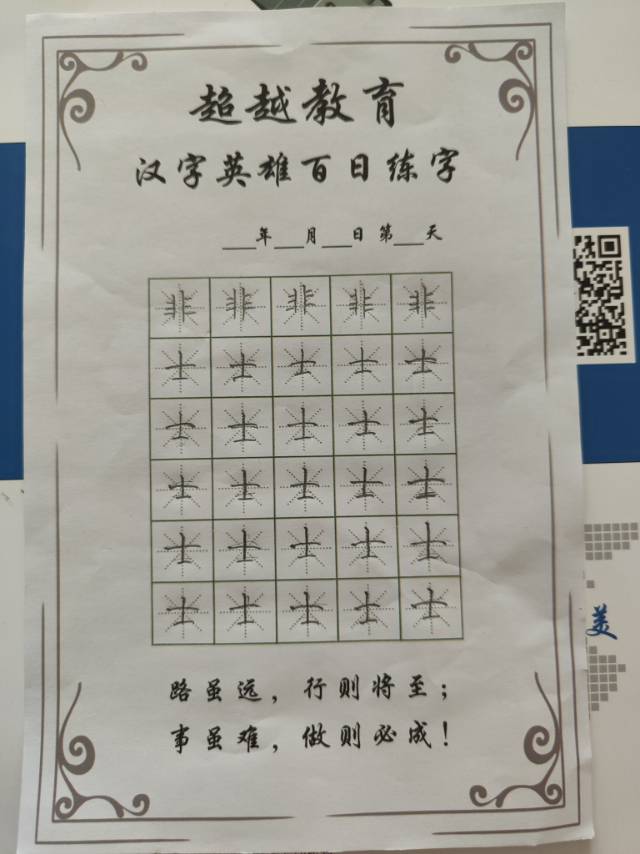 超越教育
汉字英雄百日练字
___年___月___日 第___天
非 非 非 非 非
士 士 士 士 士
士 士 士 士 士
士 士 士 士 士
士 士 士 士 士
士 士 士 士 士
路虽远，行则将至；
事虽难，做则必成！
美